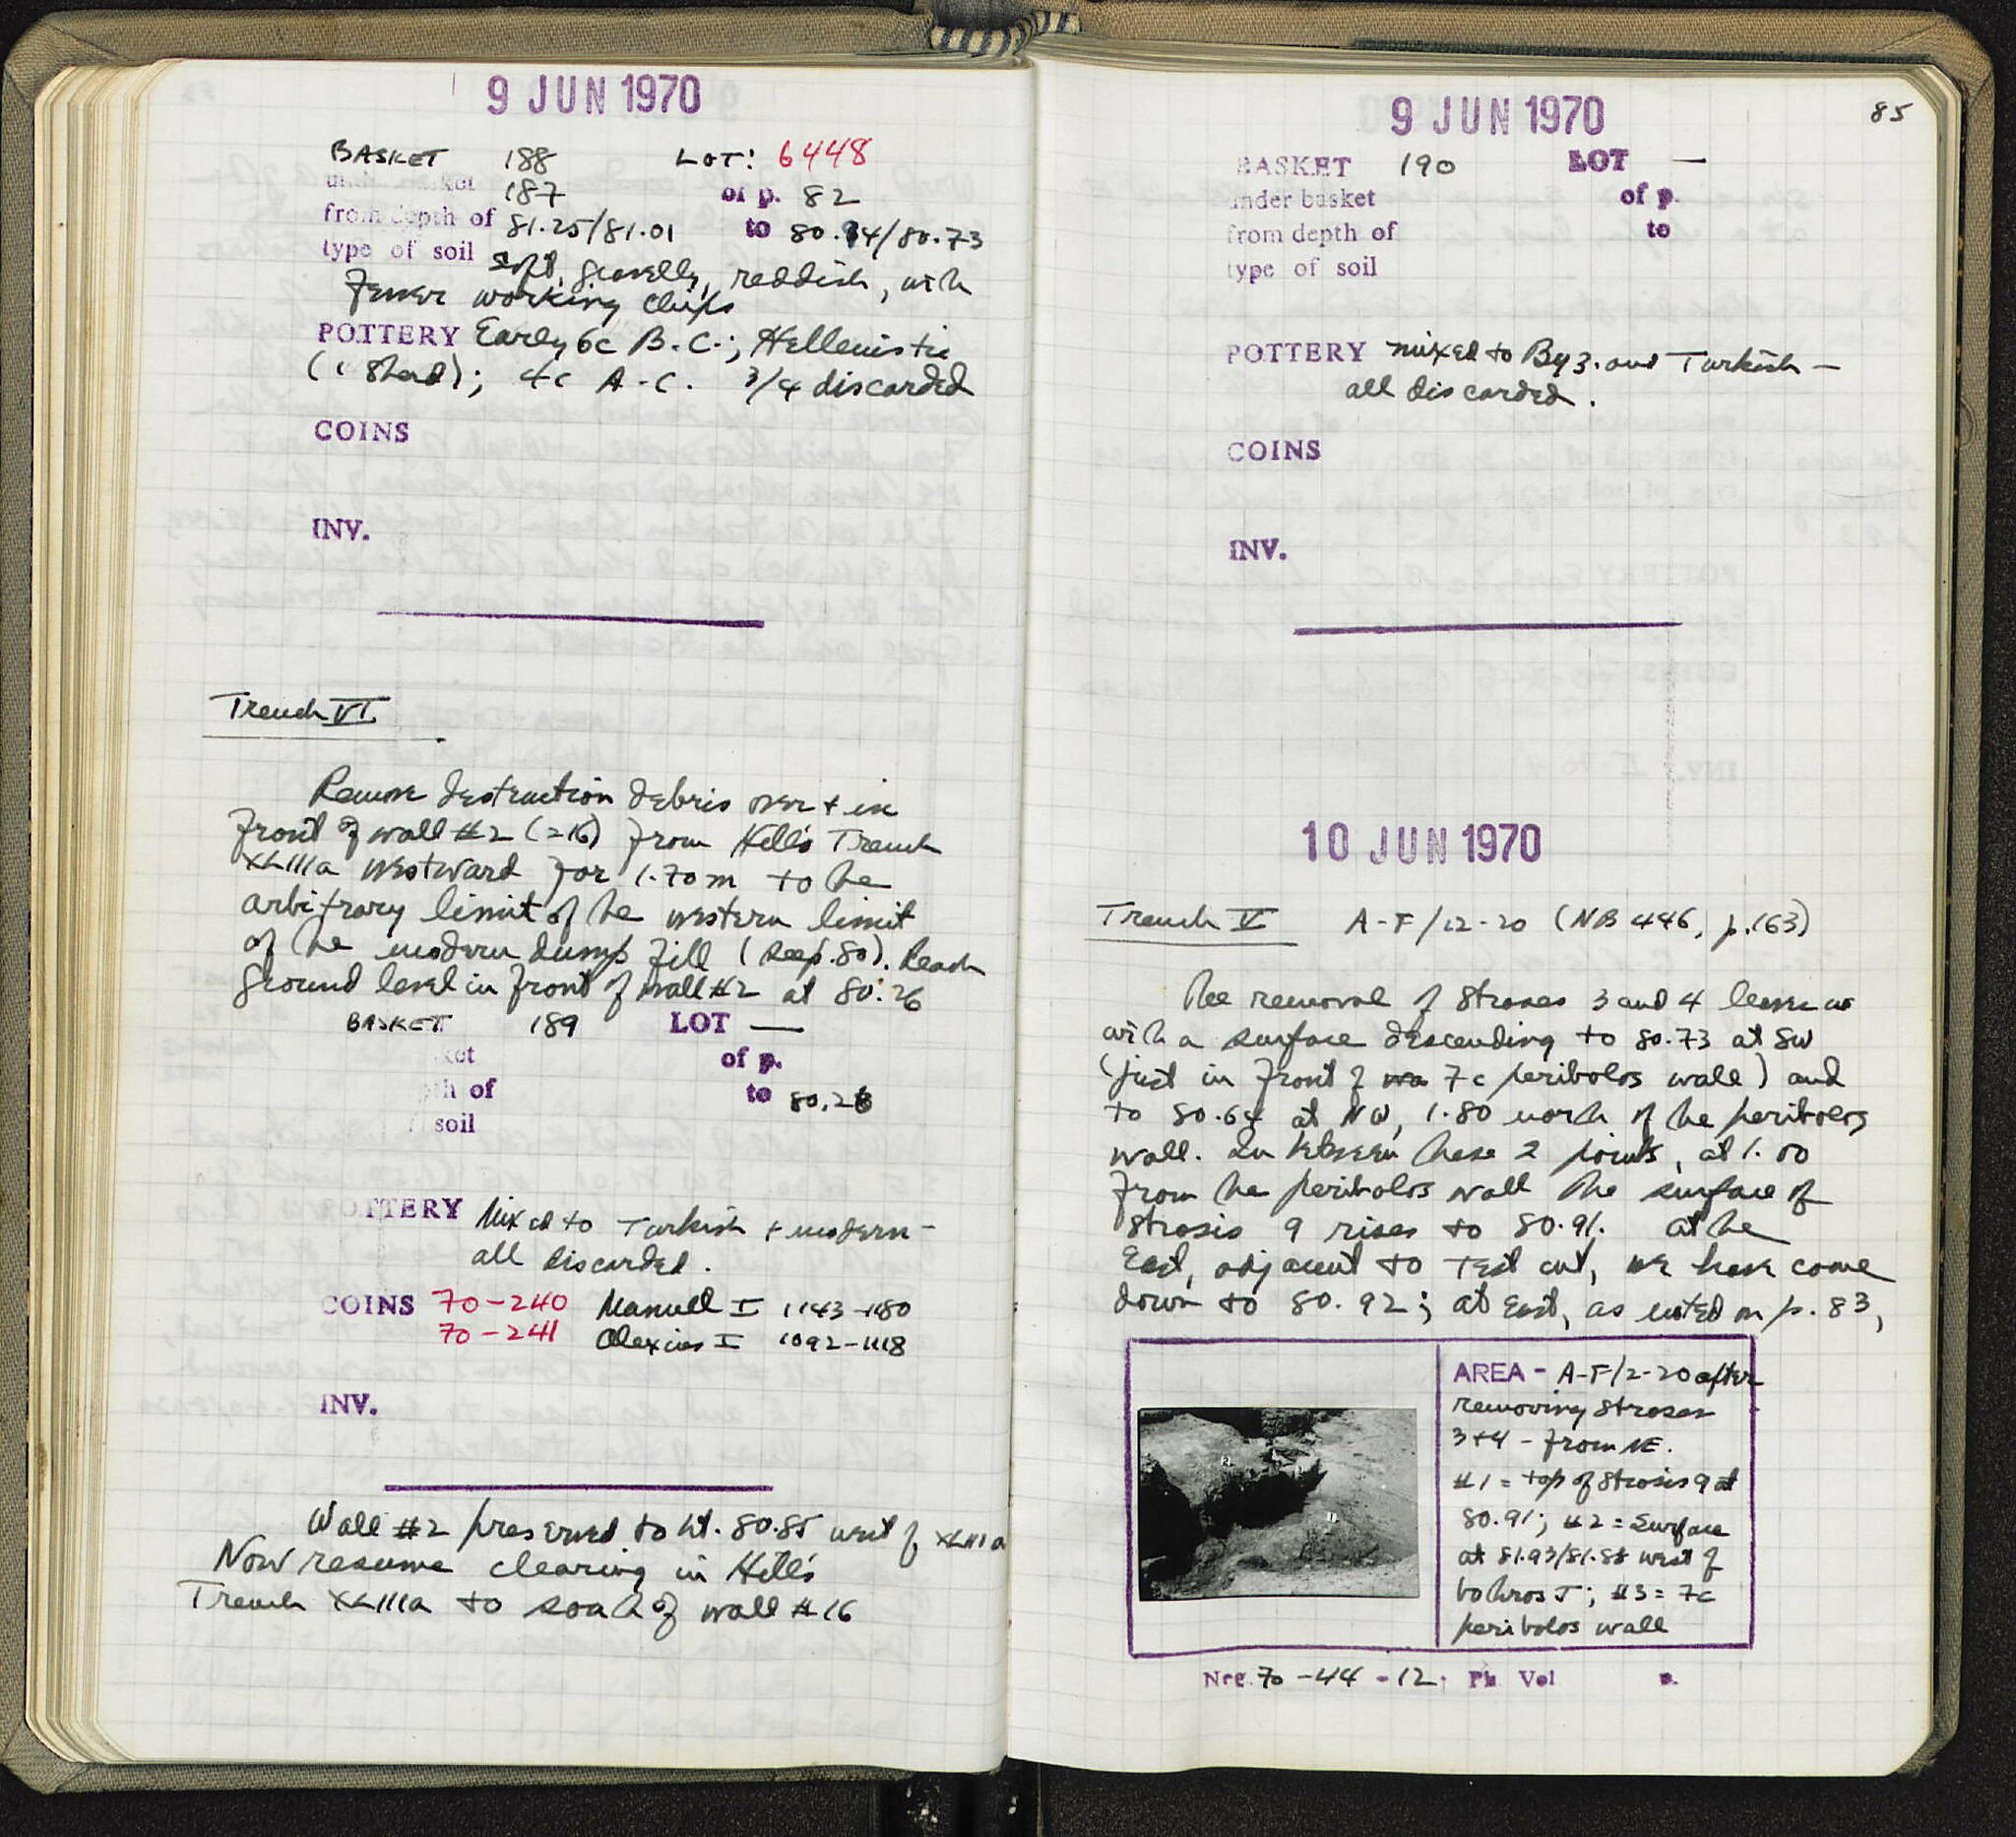 9 JUN 1970
BASKET 188 LOT: 6448
under basket 187 of p. 82
from depth of 81.25/81.01 to 80.94/80.73
type of soil soft, gravelly, reddish, with
fewer working chips
POTTERY Early 6c B.C.; Hellenistic
(1 sherd); 4c A.C. 3/4 discarded
COINS
INV.
Trench VI
Remove destruction debris over + in
front of wall #2 (=16) from Hill's Trench
XLIIIa westward for 1.70m to the
arbitrary limit of the western limit
of the modern dump fill (see p. 80). Reach
ground level in front of wall #2 at 80.26
BASKET 189 LOT —
ket of p.
th of to 80.26
soil
POTTERY Mixed to Turkish + modern –
all discarded.
COINS 70-240 Manuel I 1143-1180
70-241 Alexius I 1092-1118
INV.
Wall #2 preserved to ht. 80.85 west of XLIIIa
Now resume clearing in Hill's
Trench XLIIIa to south of wall #16
85
9 JUN 1970
BASKET 190 LOT —
under basket of p.
from depth of to
type of soil
POTTERY mixed to Byz. and Turkish –
all discarded.
COINS
INV.
10 JUN 1970
Trench V A-F/12-20 (NB 446, p.163)
The removal of stroses 3 and 4 leaves us
with a surface descending to 80.73 at SW
(just in front of 7c peribolos wall) and
to 80.64 at NW, 1.80 north of the peribolos
wall. In between these 2 points, at 1.00
from the peribolos wall the surface of
strosis 9 rises to 80.91. At the
East, adjacent to test cut, we have come
down to 80.92; at East, as noted on p. 83,
AREA - A-F/12-20 after
removing stroses
3+4 - from NE.
#1 = top of strosis 9 at
80.91; #2 = surface
at 81.93/81.88 west of
bothros J; #3 = 7c
peribolos wall
2
1
Neg. 70-44-12; Ph Vol p.